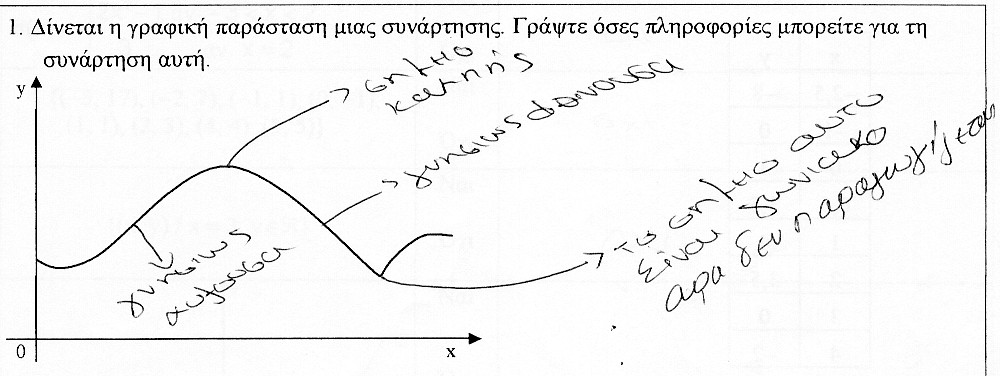 1. Δίνεται η γραφική παράσταση μιας συνάρτησης. Γράψτε όσες πληροφορίες μπορείτε για τη
συνάρτηση αυτή.
y
σημειο
καμπής
γνησιως φθινουσα
γνησιως
αυξουσα
το σημειο αυτο
είναι γωνιακο
αρα δεν παραγωγίζεται
0
x